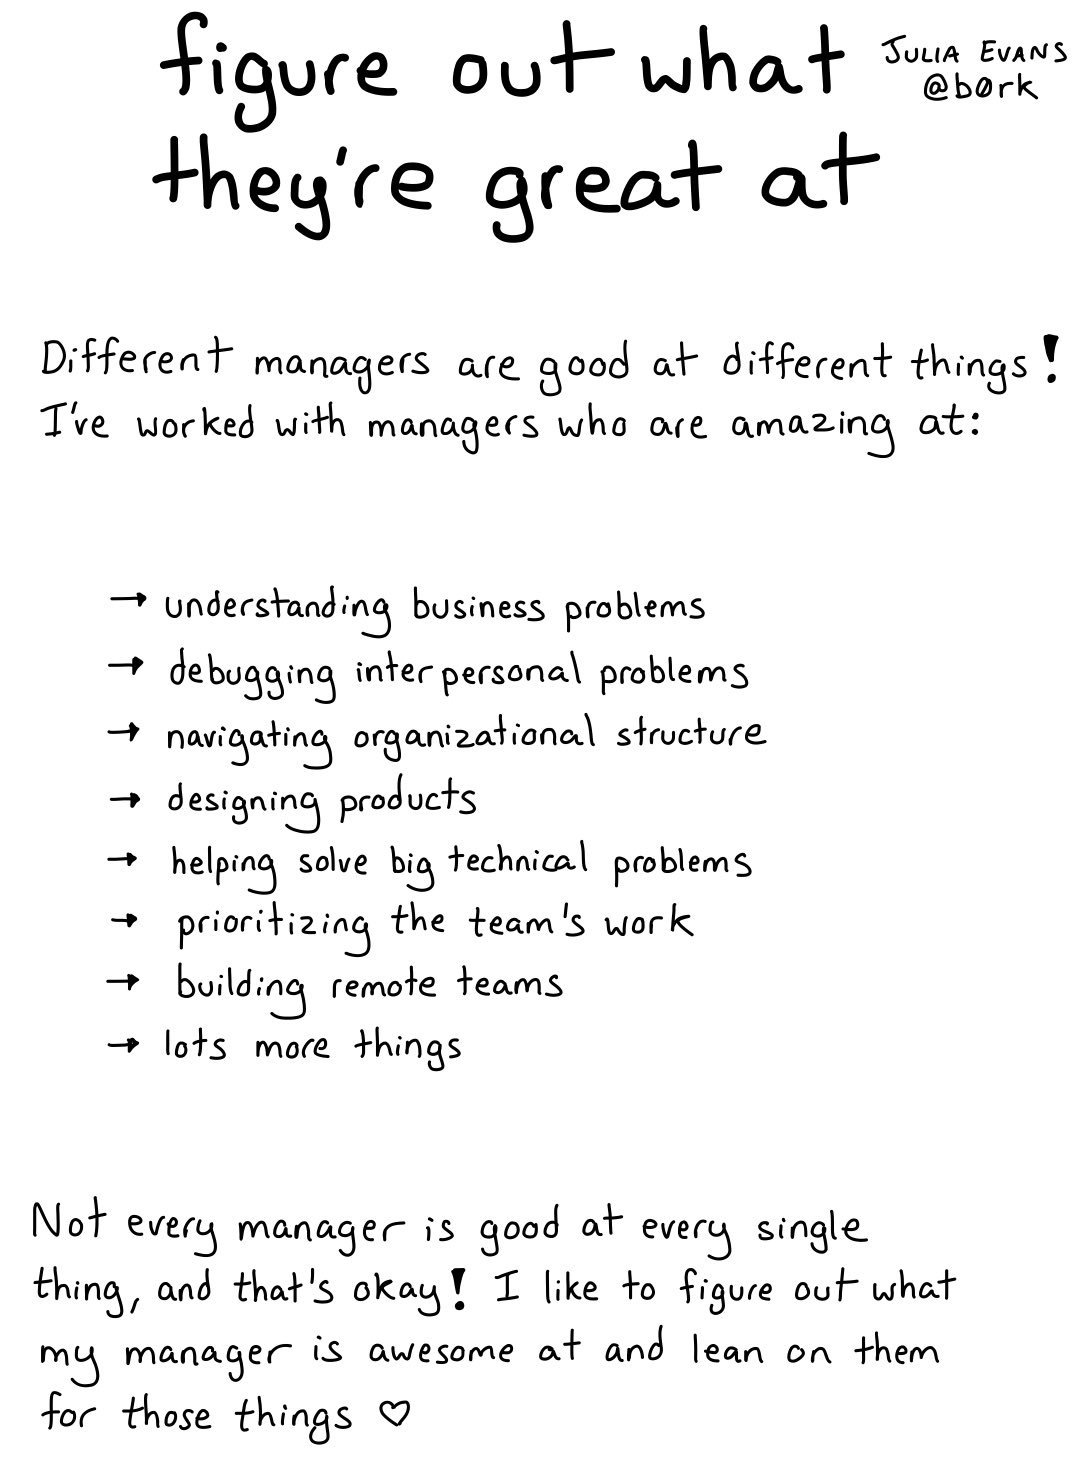 figure out what
they're great at
JULIA EVANS
@b0rk
Different managers are good at different things!
I've worked with managers who are amazing at:
→ understanding business problems
→ debugging interpersonal problems
→ navigating organizational structure
→ designing products
→ helping solve big technical problems
→ prioritizing the team's work
→ building remote teams
→ lots more things
Not every manager is good at every single
thing, and that's okay! I like to figure out what
my manager is awesome at and lean on them
for those things ♡